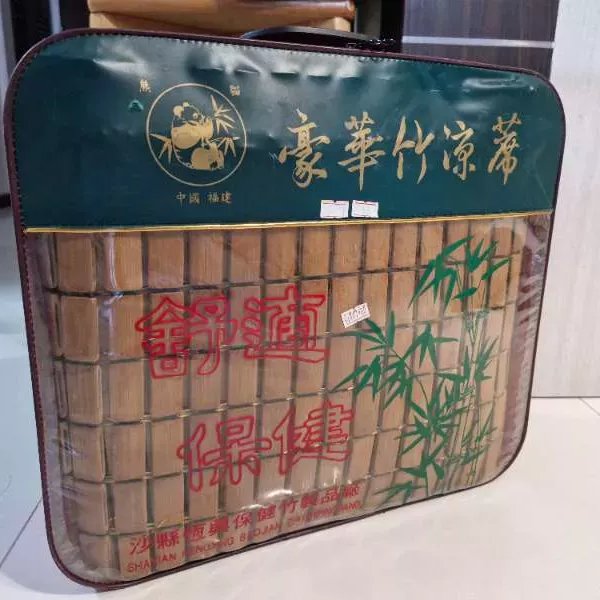 熊猫
中國 福建
豪華竹涼蓆
舒適
保健
沙縣恆興保健竹製品廠
SHAXIAN HENGXING BAOJIAN ZHUZHIPINCHANG